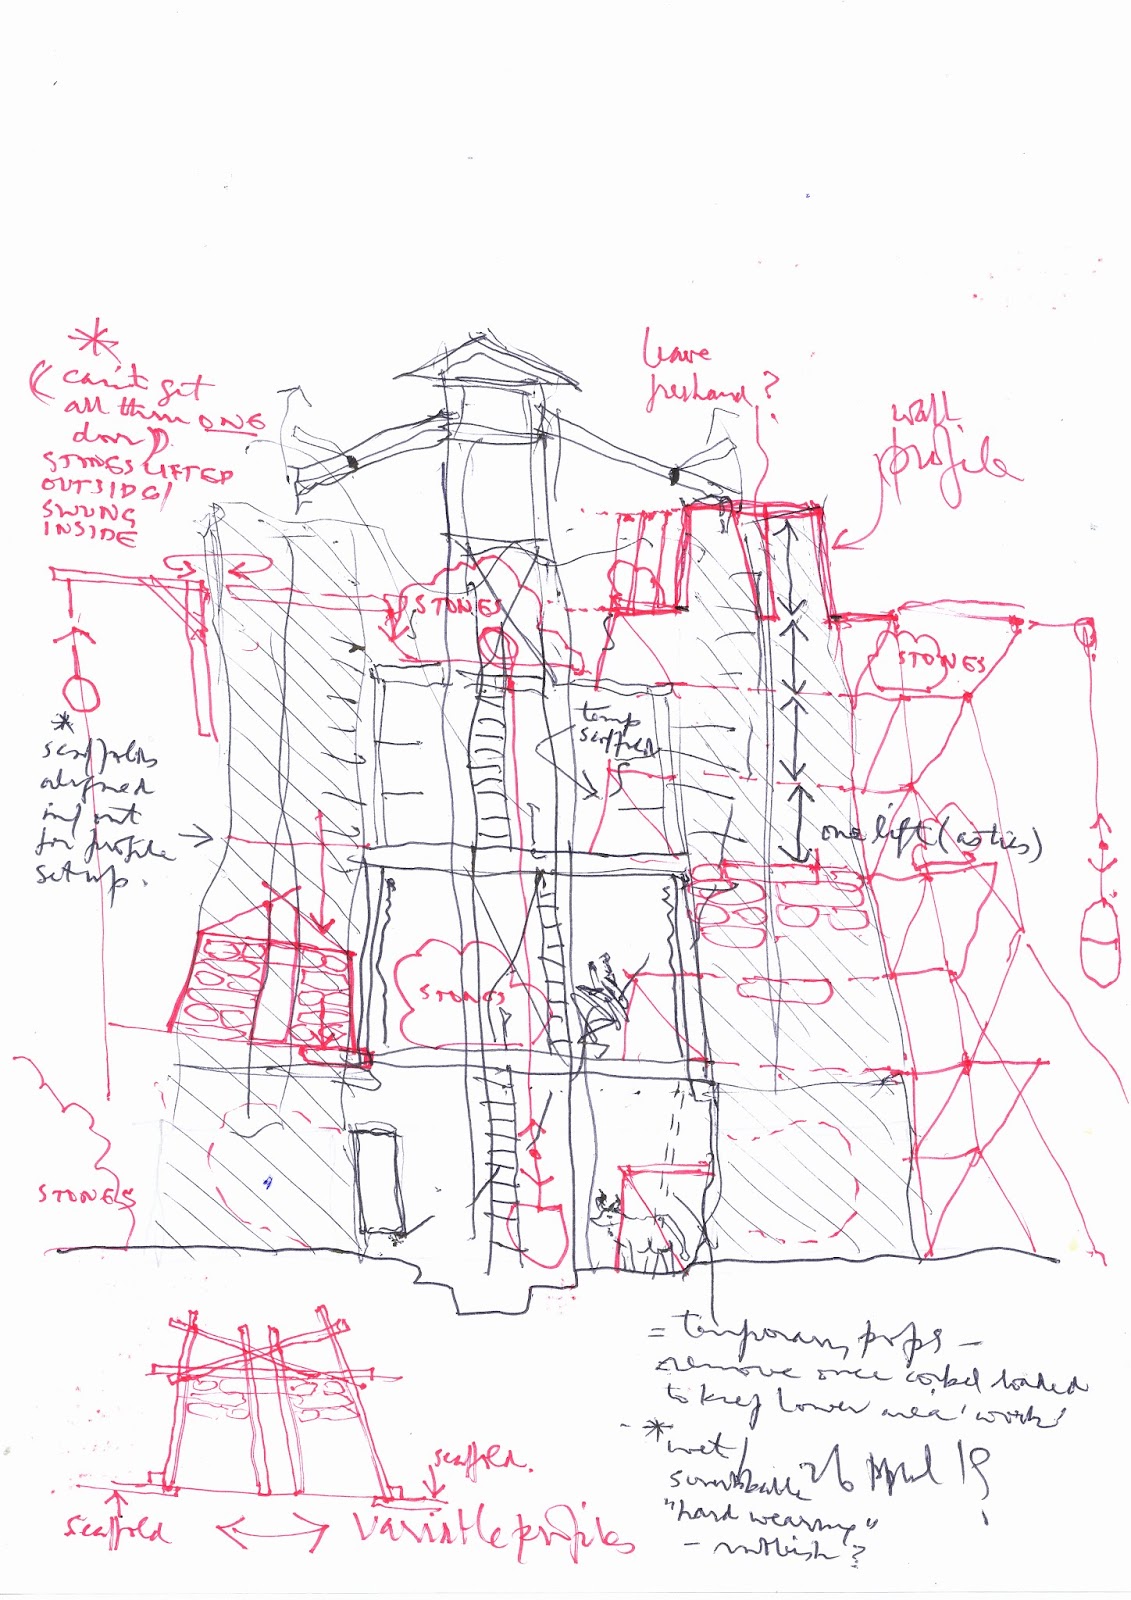 (can't get
all thru ONE
door).
STONES LIFTED
OUTSIDE/
SWUNG
INSIDE
leave
freehand?
wall
profile
STONES
STONES
* scaffolds
aligned
in/out
for profile
set up.
temp
scaffold
one lift (as ties)
STONES
STONES
= temporary props –
remove once corbel loaded
to keep lower area 'work'
* wet/
26 April 19
"hard wearing"
– rubbish?
scaffold.
scaffold
variable profiles